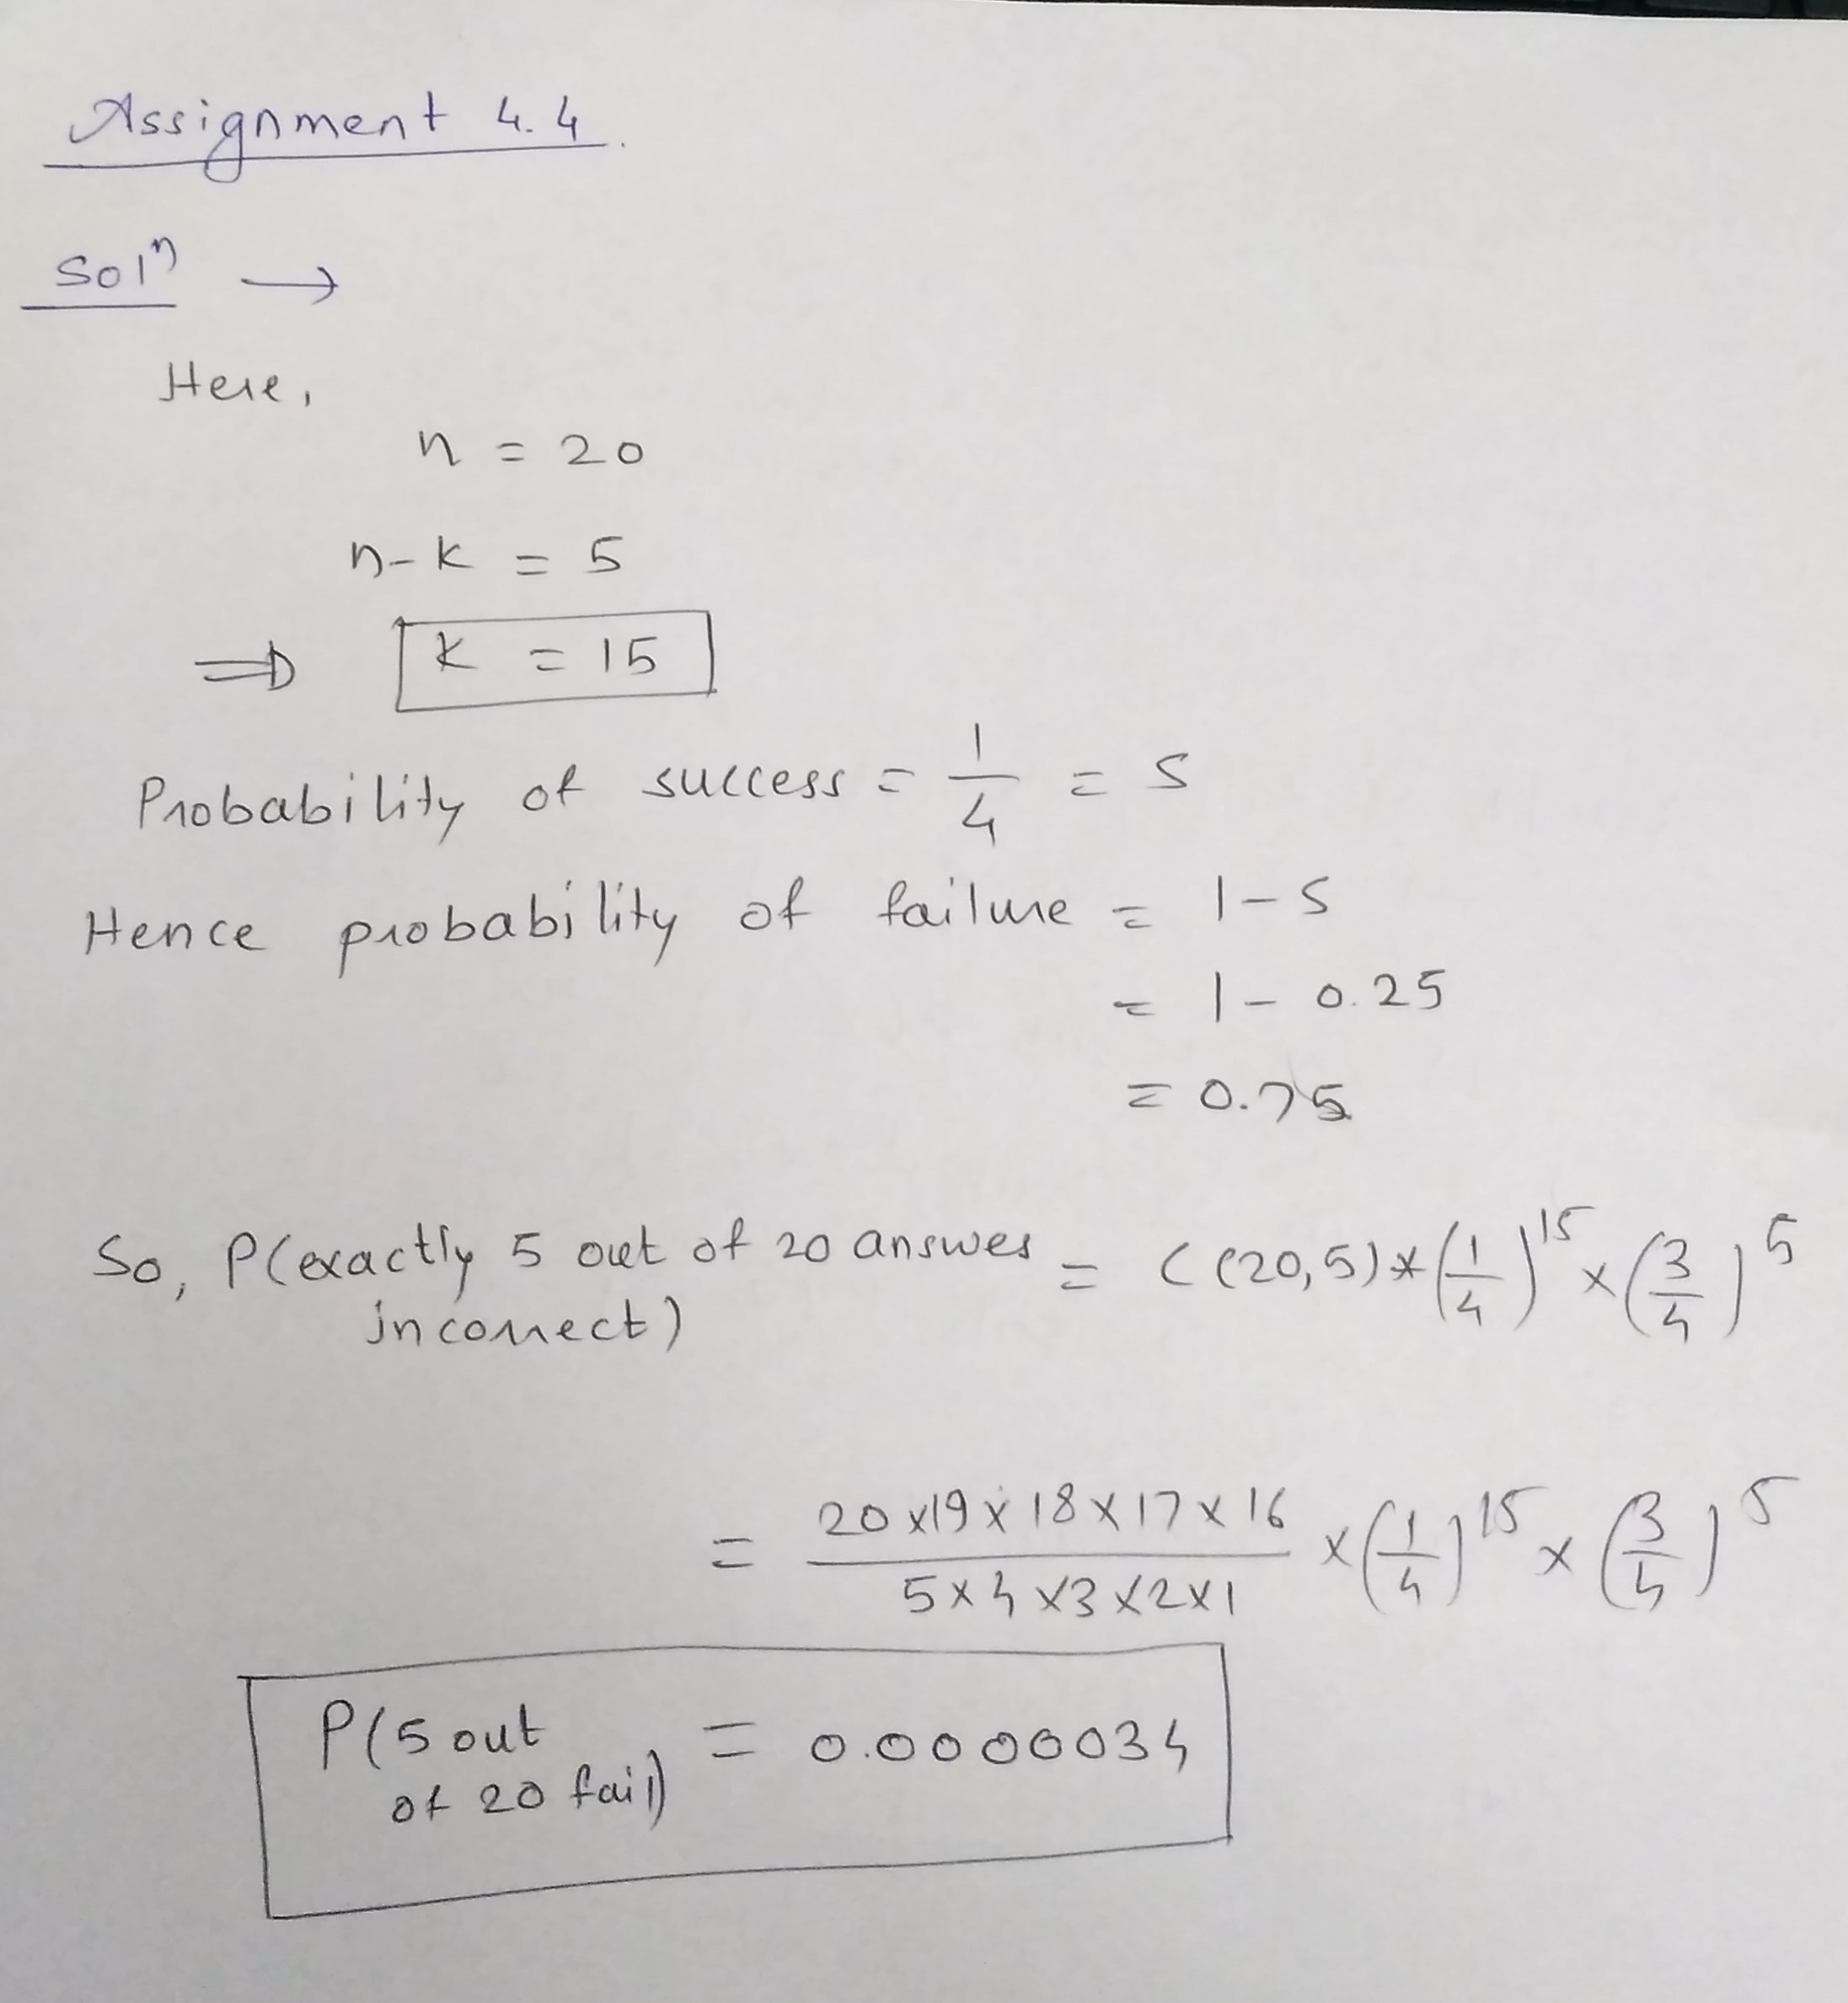 Assignment 4.4.
Solⁿ →
Here,
n = 20
n-k = 5
⇒ K = 15
Probability of success = 1/4 = S
Hence probability of failure = 1-S
= 1 - 0.25
= 0.75
So, P(exactly 5 out of 20 answer = C(20,5) * (1/4)^15 × (3/4)^5
incorrect)
= (20×19×18×17×16)/(5×4×3×2×1) × (1/4)^15 × (3/4)^5
P(5 out = 0.0000034
of 20 fail)